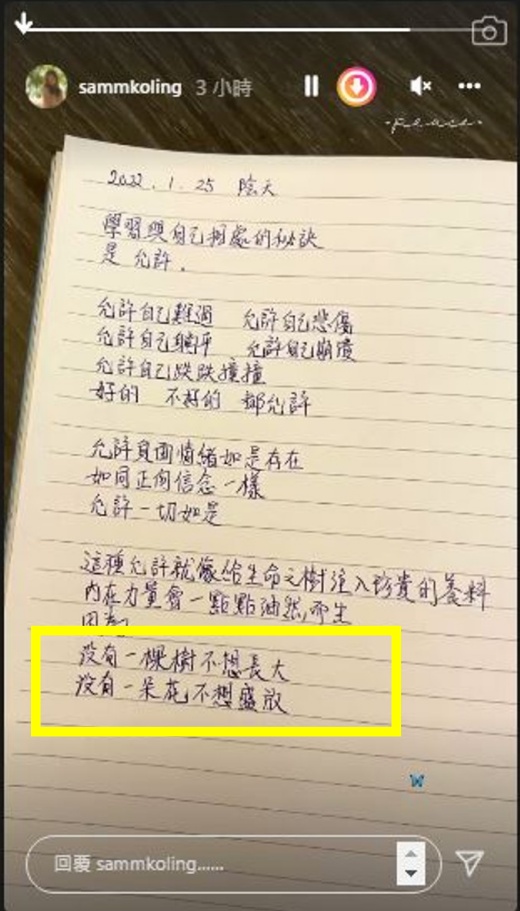 sammkoling 3 小時
peace
2022.1.25 陰天
學習與自己相處的秘訣
是 允許.
允許自己難過 允許自己悲傷
允許自己躺平 允許自己崩潰
允許自己跌跌撞撞
好的 不好的 都允許
允許負面情緒如是存在
如同正向信念一樣
允許一切如是
這種允許就像給生命之樹注入珍貴的養料
內在力量會一點點油然而生
因為
沒有一棵樹不想長大
沒有一朵花不想盛放
回覆 sammkoling......